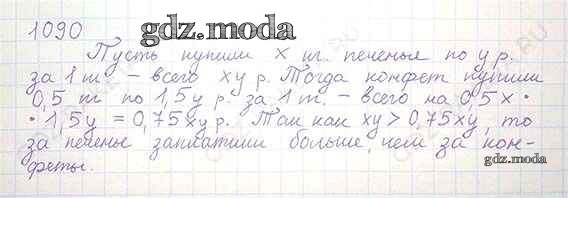 1090
gdz.moda
Пусть купили х кг. печенья по у р.
за 1 кг. – всего ху р. Тогда конфет купили
0,5 кг по 1,5у р. за 1 кг. – всего на 0,5х ·
· 1,5у = 0,75ху р. Так как ху > 0,75ху, то
за печенье заплатили больше, чем за кон-
gdz.moda
феты.